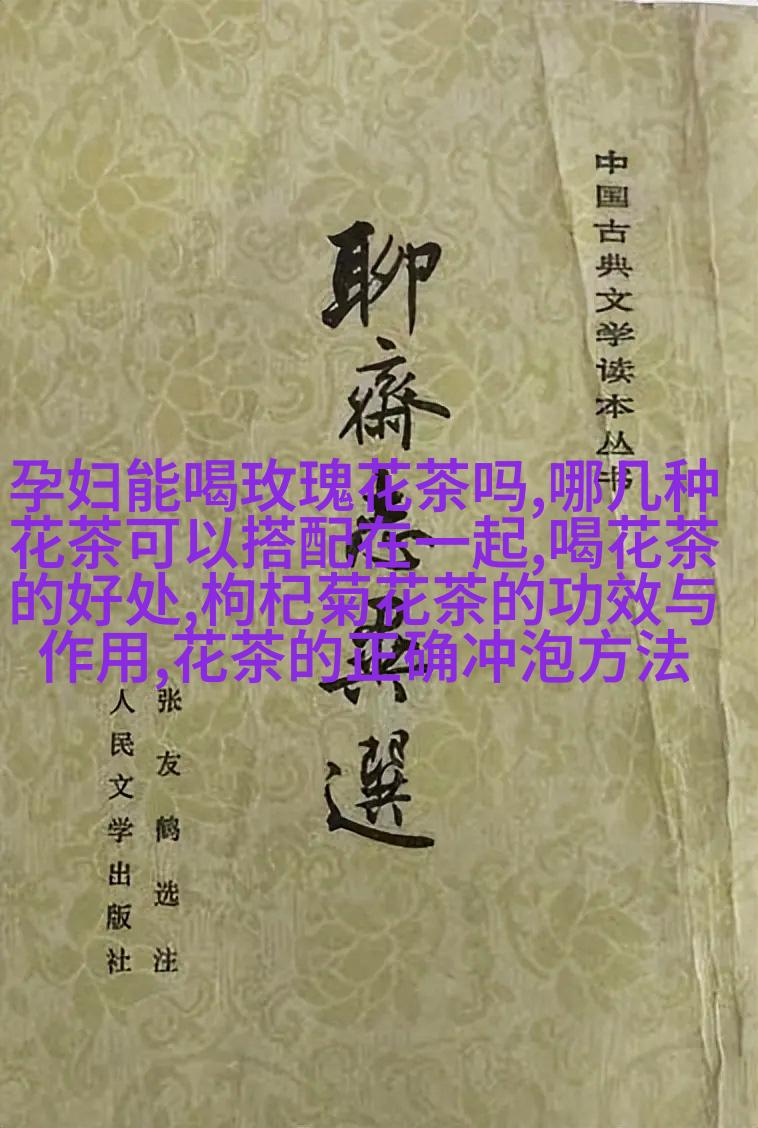 中国古典文学读本丛书
聊齋志異選
孕妇能喝玫瑰花茶吗,哪几种
花茶可以搭配在一起,喝花茶
的好处,枸杞菊花茶的功效与
作用,花茶的正确冲泡方法
张友鹤选注
人民文学出版社